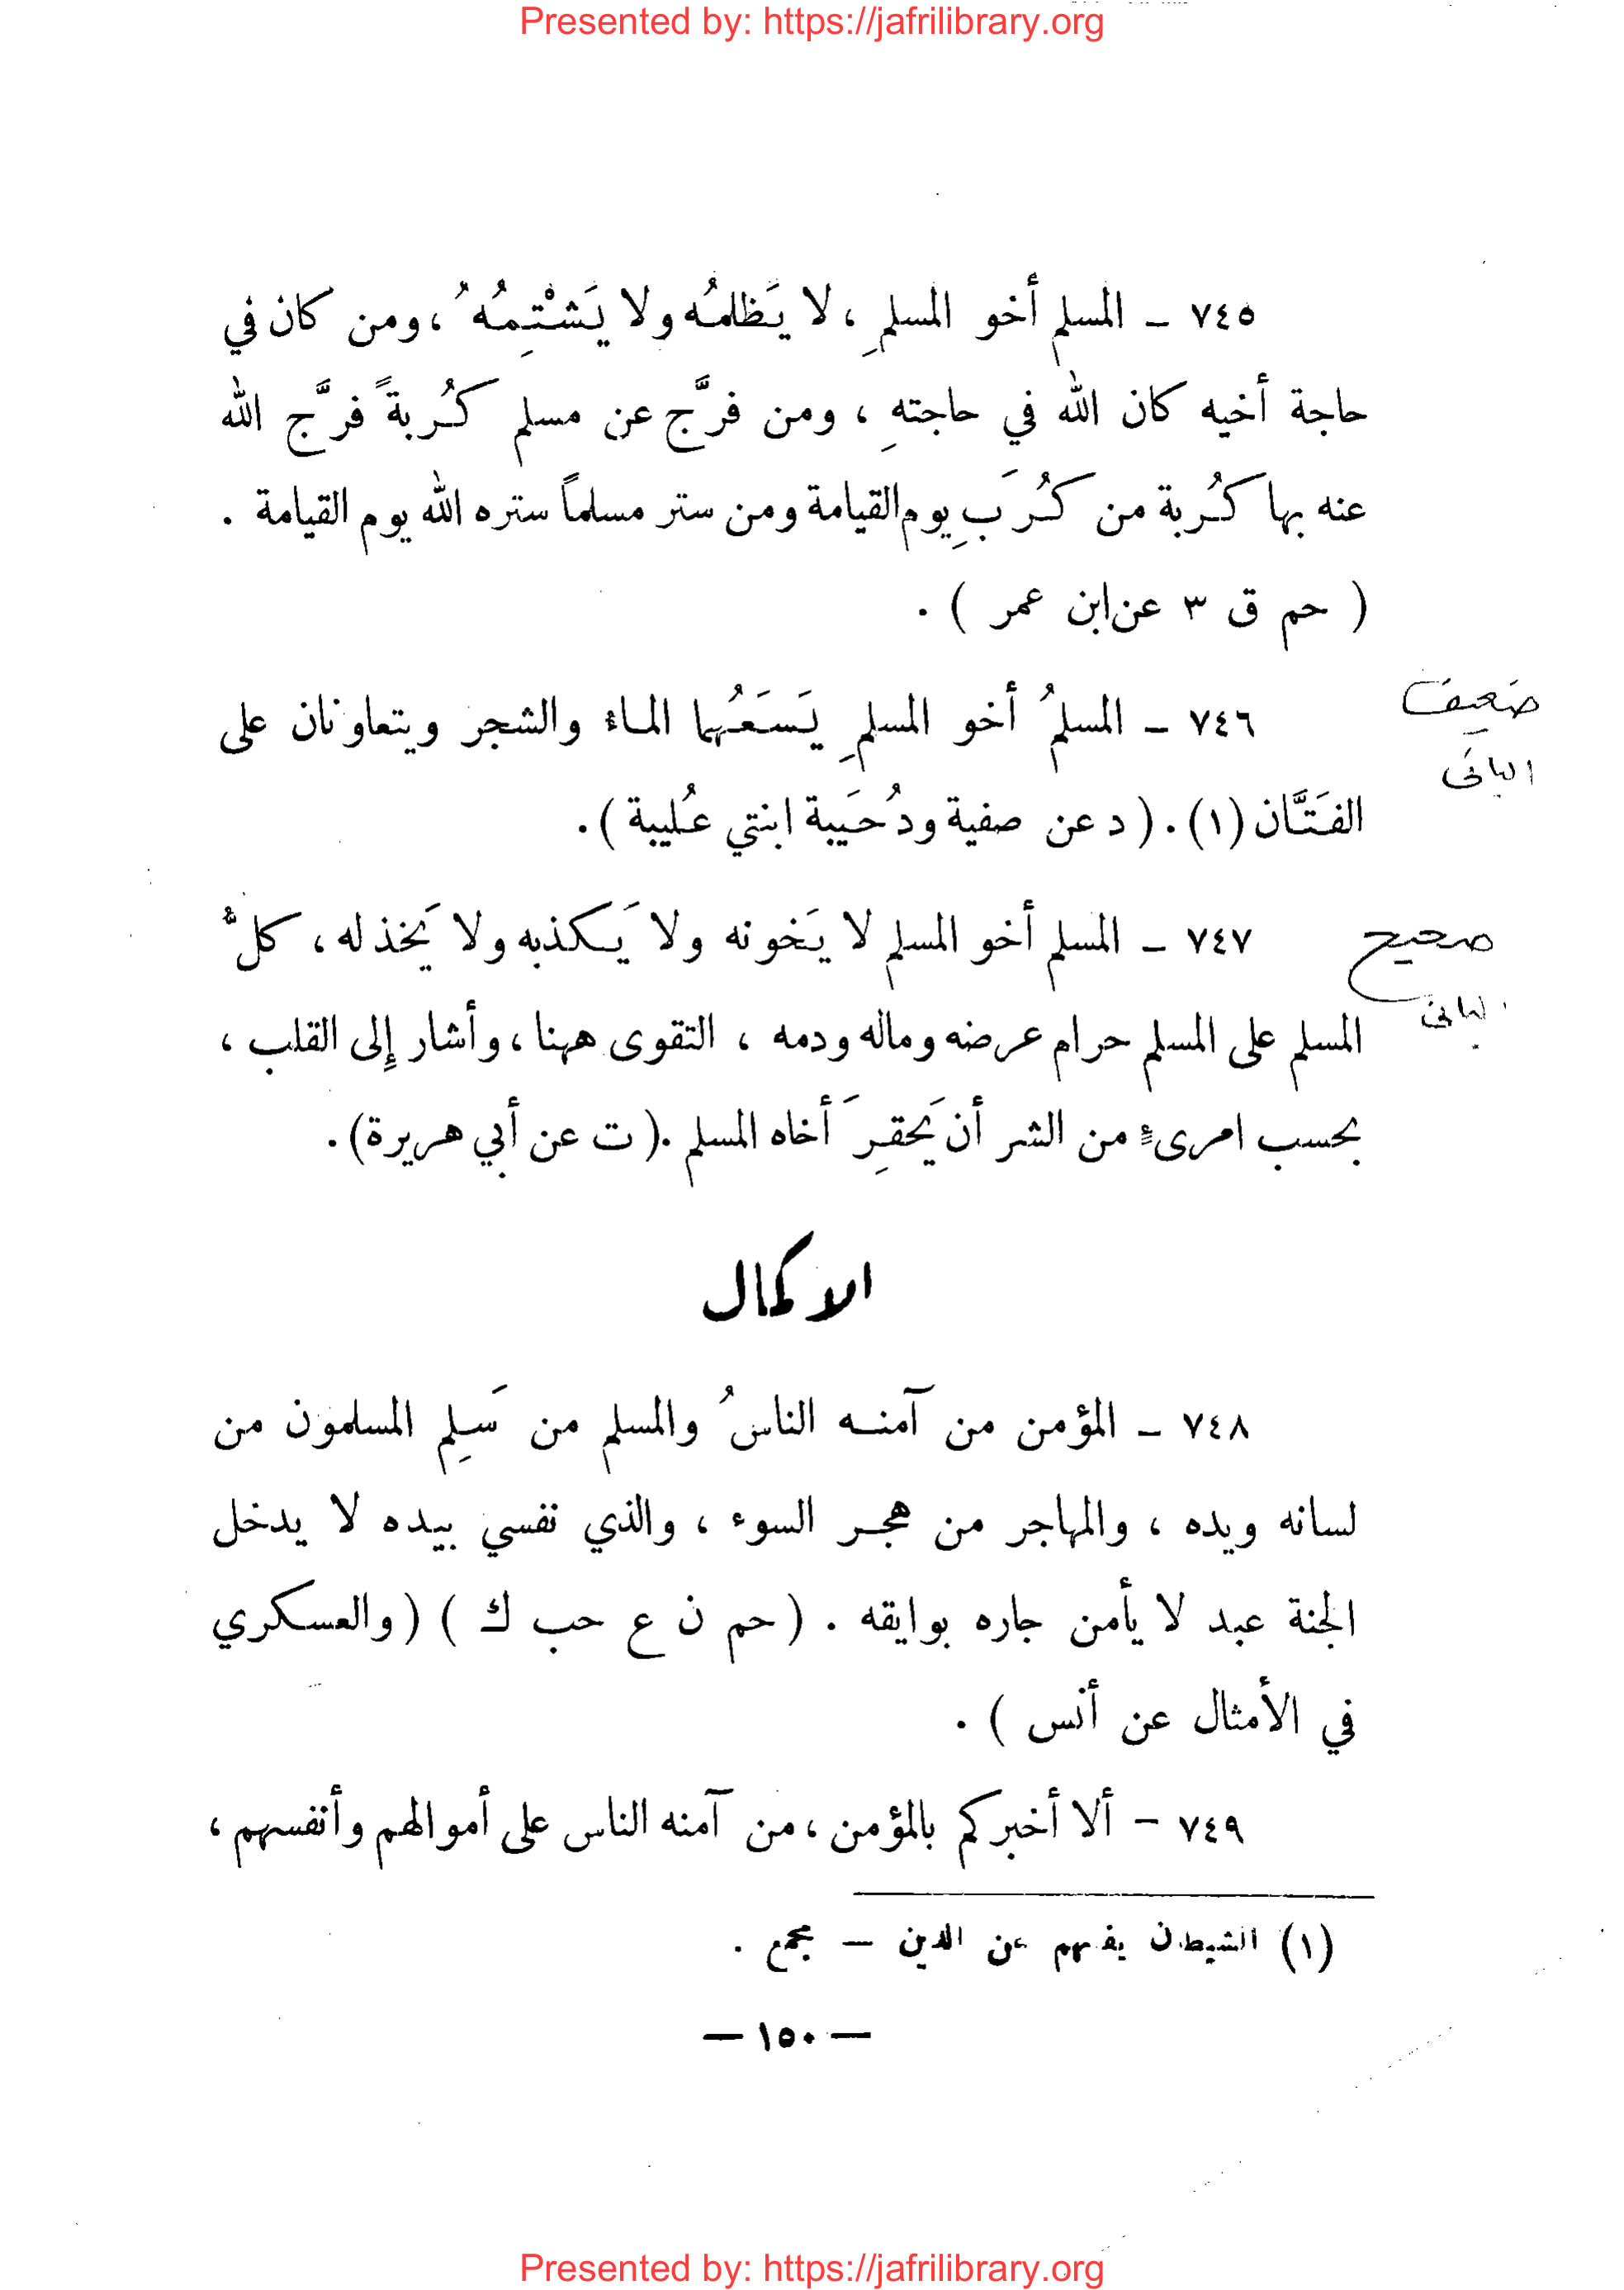 Presented by: https://jafrilibrary.org
٧٤٥ – المسلم أخو المسلمِ ، لا يَظلمُه ولا يَشْتِمُهُ ، ومن كان في
حاجة أخيه كان الله في حاجتهِ ، ومن فرَّج عن مسلم كُربةً فرَّج الله
عنه بها كُربة من كُرَبِ يوم القيامة ومن ستر مسلماً ستره الله يوم القيامة .
( حم ق ٣ عن ابن عمر ) .
ضعيف
٧٤٦ – المسلمُ أخو المسلمِ يَسَعُهما الماء والشجر ويتعاونان على
البانى
الفَتَّان (١) . ( د عن صفية ودُحَيبة ابنتي عُليبة ) .
صحيح
٧٤٧ – المسلم أخو المسلم لا يَخونه ولا يَكذبه ولا يَخذله ، كلُّ
البانى
المسلم على المسلم حرام عرضه وماله ودمه ، التقوى ههنا ، وأشار إلى القلب ،
بحسب امرىءٍ من الشر أن يَحقِرَ أخاه المسلم . ( ت عن أبي هريرة ) .
الاكمال
٧٤٨ – المؤمن من آمنه الناسُ والمسلم من سَلِم المسلمون من
لسانه ويده ، والمهاجر من هجر السوء ، والذي نفسي بيده لا يدخل
الجنة عبد لا يأمن جاره بوايقه . ( حم ن ع حب ك ) ( والعسكري
في الأمثال عن أنس ) .
٧٤٩ – ألا أخبركم بالمؤمن ، من آمنه الناس على أموالهم وأنفسهم ،
(١) الشيطان يفتنهم عن الدين – مجمع .
— ١٥٠ —
Presented by: https://jafrilibrary.org